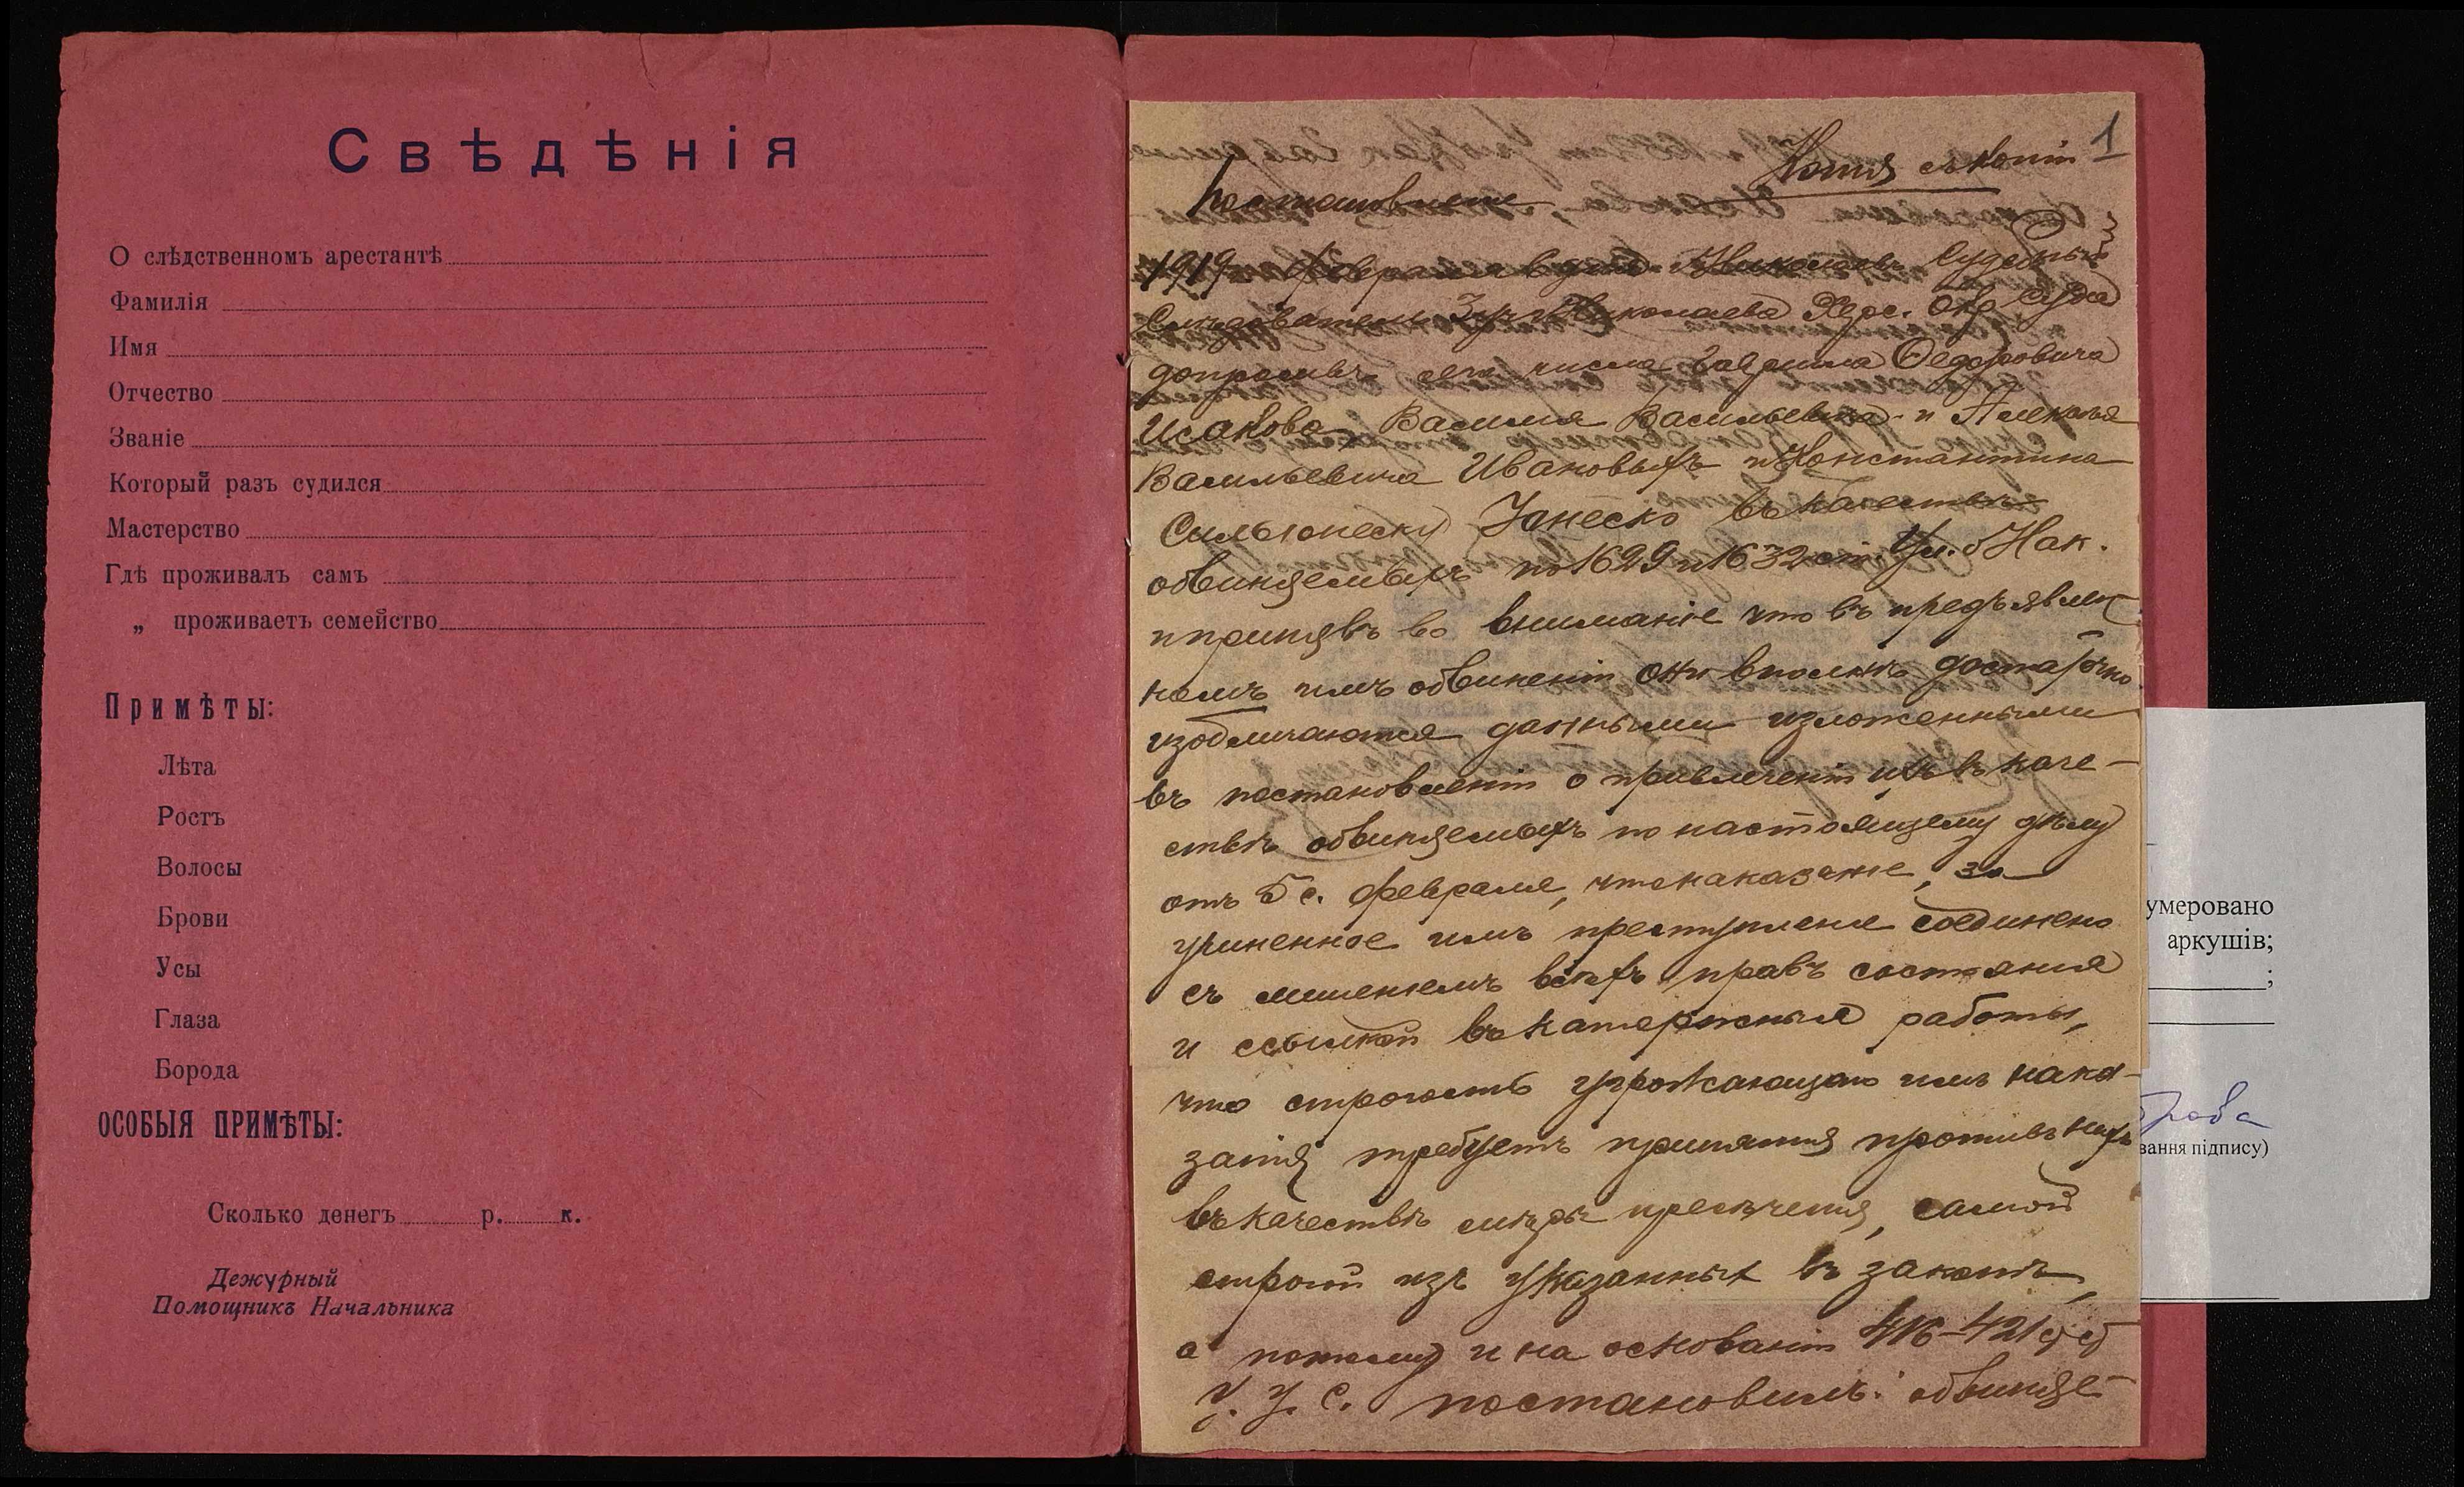 Свѣдѣнія
О слѣдственномъ арестантѣ
Фамилія
Имя
Отчество
Званіе
Который разъ судился
Мастерство
Гдѣ проживалъ самъ
„ проживаетъ семейство
Примѣты:
Лѣта
Ростъ
Волосы
Брови
Усы
Глаза
Борода
ОСОБЫЯ ПРИМѢТЫ:
Сколько денегъ р. к.
Дежурный
Помощникъ Начальника
1
Копія съ копіи
Постановленіе
1919 г. Февраля дня г. Николаевъ Судебный
Слѣдователь 3 уч. г. Николаева Херс. Окр. Суда
допросивъ сего числа Гавриила Федоровича
Исакова, Василия Васильевича и Алексѣя
Васильевича Ивановыхъ и Константина
Сильонеску Іонеско въ качествѣ
обвиняемыхъ по 1629 и 1632 ст. Ул. о Нак.
и принявъ во вниманіе что въ предъявлен
номъ имъ обвиненіи они вполнѣ достаточно
изобличаются данными изложенными
въ постановленіи о привлеченіи ихъ въ каче-
ствѣ обвиняемыхъ по настоящему дѣлу
отъ 5 с. Февраля, что наказание, за
учиненное имъ преступленіе соединено
съ лишеніемъ всѣхъ правъ состоянія
и ссылкой въ каторжныя работы,
что строгость угрожающаго имъ нака-
занія требуетъ принятія противъ нихъ
въ качествѣ мѣры пресѣченія, самой
строгой изъ указанныхъ въ законѣ,
а потому и на основаніи 416-421 ст ст
У. У. С. постановилъ: обвиняе-
умеровано
аркушів;
;
вання підпису)